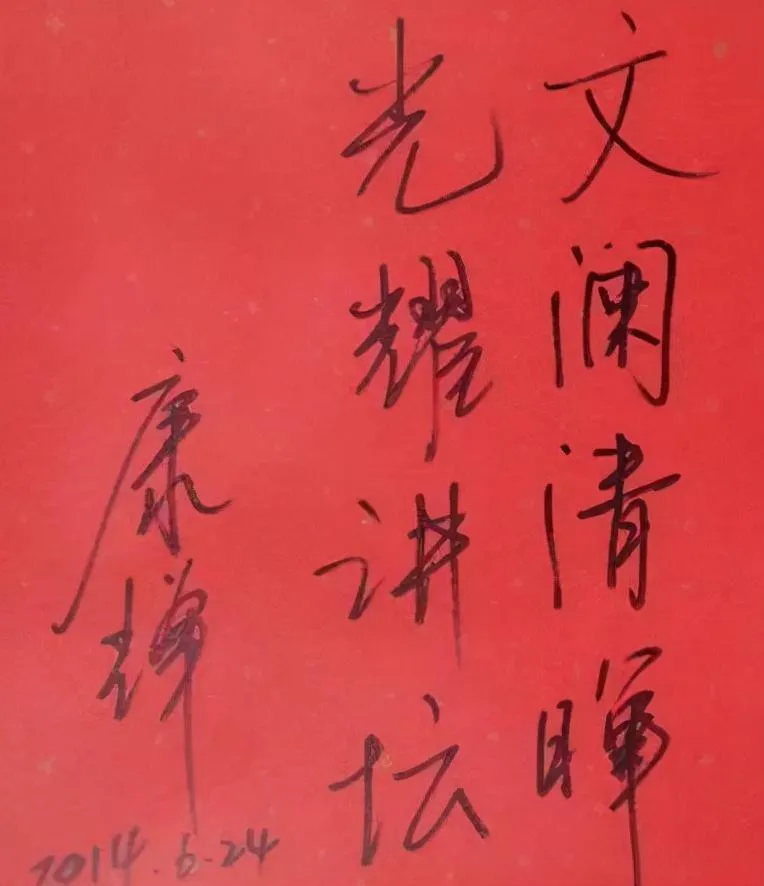 文澜清晖
光耀讲坛
康辉
2014.6.24